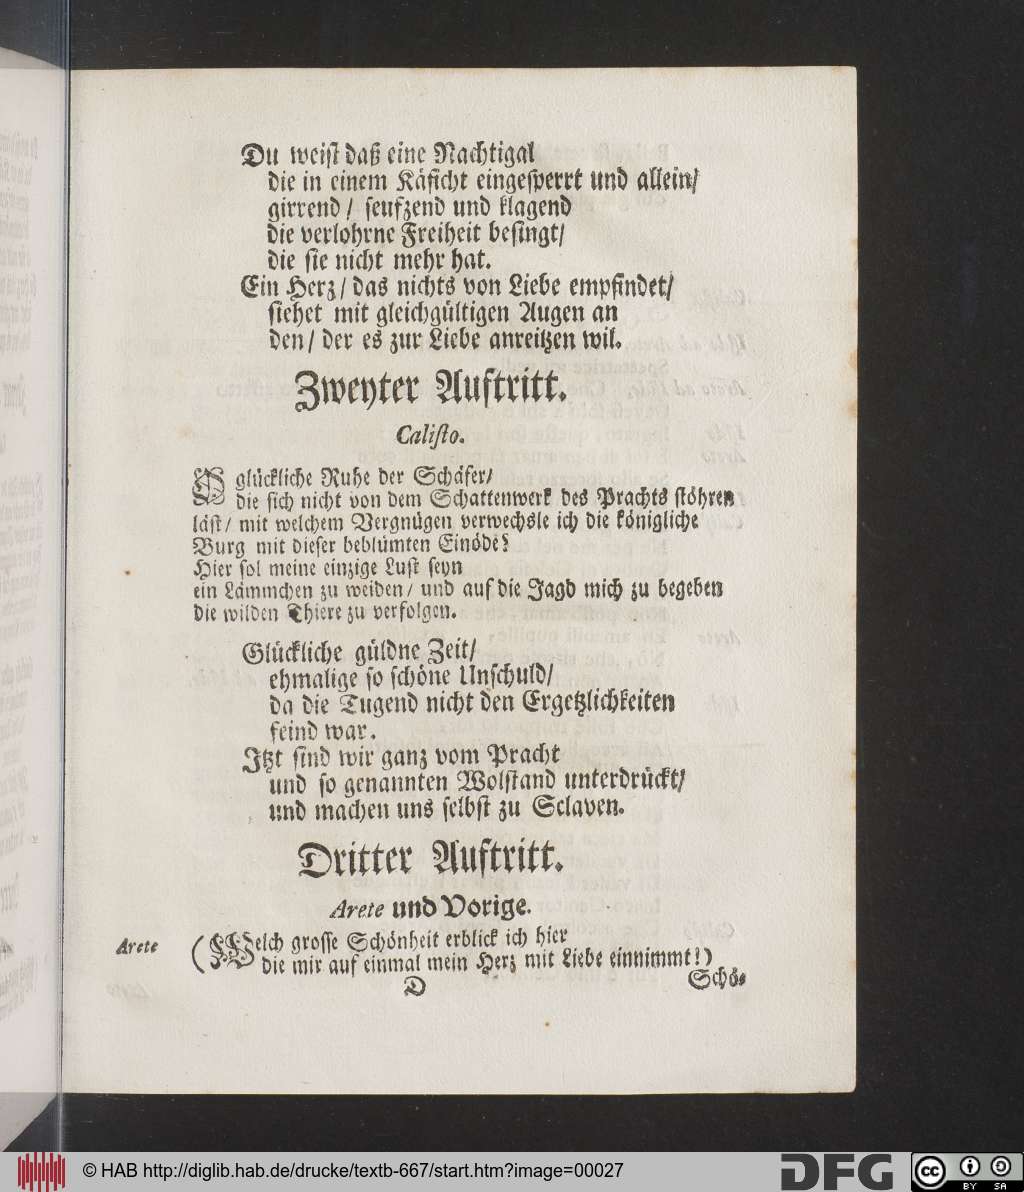 Du weist daß eine Nachtigal
die in einem Käficht eingesperrt und allein/
girrend/ seufzend und klagend
die verlohrne Freiheit besingt/
die sie nicht mehr hat.
Ein Herz/ das nichts von Liebe empfindet/
siehet mit gleichgültigen Augen an
den/ der es zur Liebe anreitzen wil.
Zweyter Auftritt.
Calisto.
O glückliche Ruhe der Schäfer/
die sich nicht von dem Schattenwerk des Prachts stöhren
läst/ mit welchem Vergnügen verwechsle ich die königliche
Burg mit dieser beblümten Einöde?
Hier sol meine einzige Lust seyn
ein Lämmchen zu weiden/ und auf die Jagd mich zu begeben
die wilden Thiere zu verfolgen.
Glückliche güldne Zeit/
ehmalige so schöne Unschuld/
da die Tugend nicht den Ergetzlichkeiten
feind war.
Itzt sind wir ganz vom Pracht
und so genannten Wolstand unterdrückt/
und machen uns selbst zu Sclaven.
Dritter Auftritt.
Arete und Vorige.
Arete (Welch grosse Schönheit erblick ich hier
die mir auf einmal mein Herz mit Liebe einnimmt!)
D Schö-
© HAB http://diglib.hab.de/drucke/textb-667/start.htm?image=00027 DFG cc BY SA